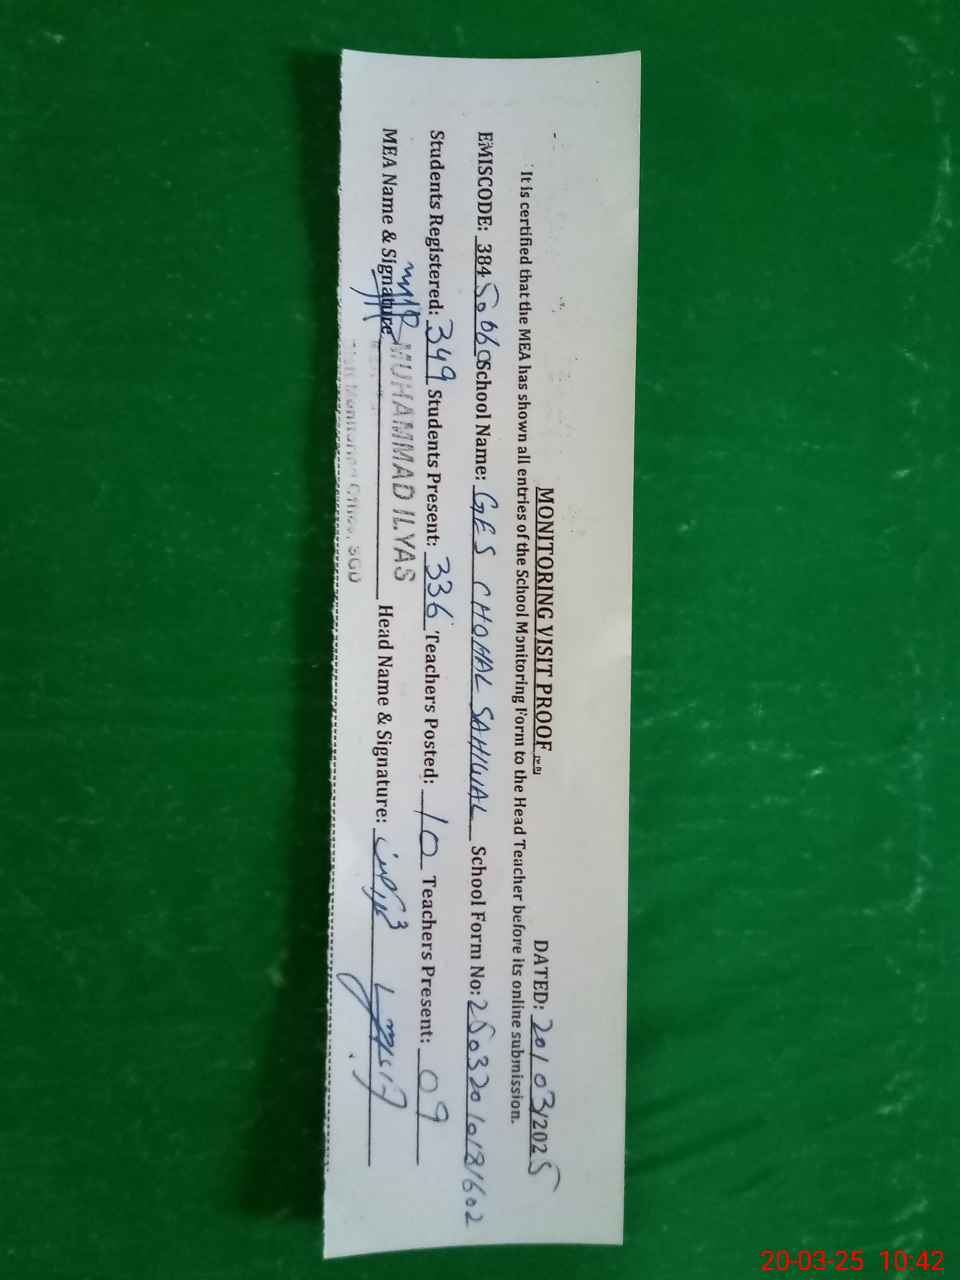 MONITORING VISIT PROOF
DATED: 20/03/2025
It is certified that the MEA has shown all entries of the School Monitoring Form to the Head Teacher before its online submission.
EMISCODE: 384 School Name: GES CHOHAL SAHIWAL School Form No: 25032010181602
Students Registered: 349 Students Present: 336 Teachers Posted: 10 Teachers Present: 09
MEA Name & Signature MUHAMMAD ILYAS Head Name & Signature:
Monitoring Office, SGD
20-03-25 10:42